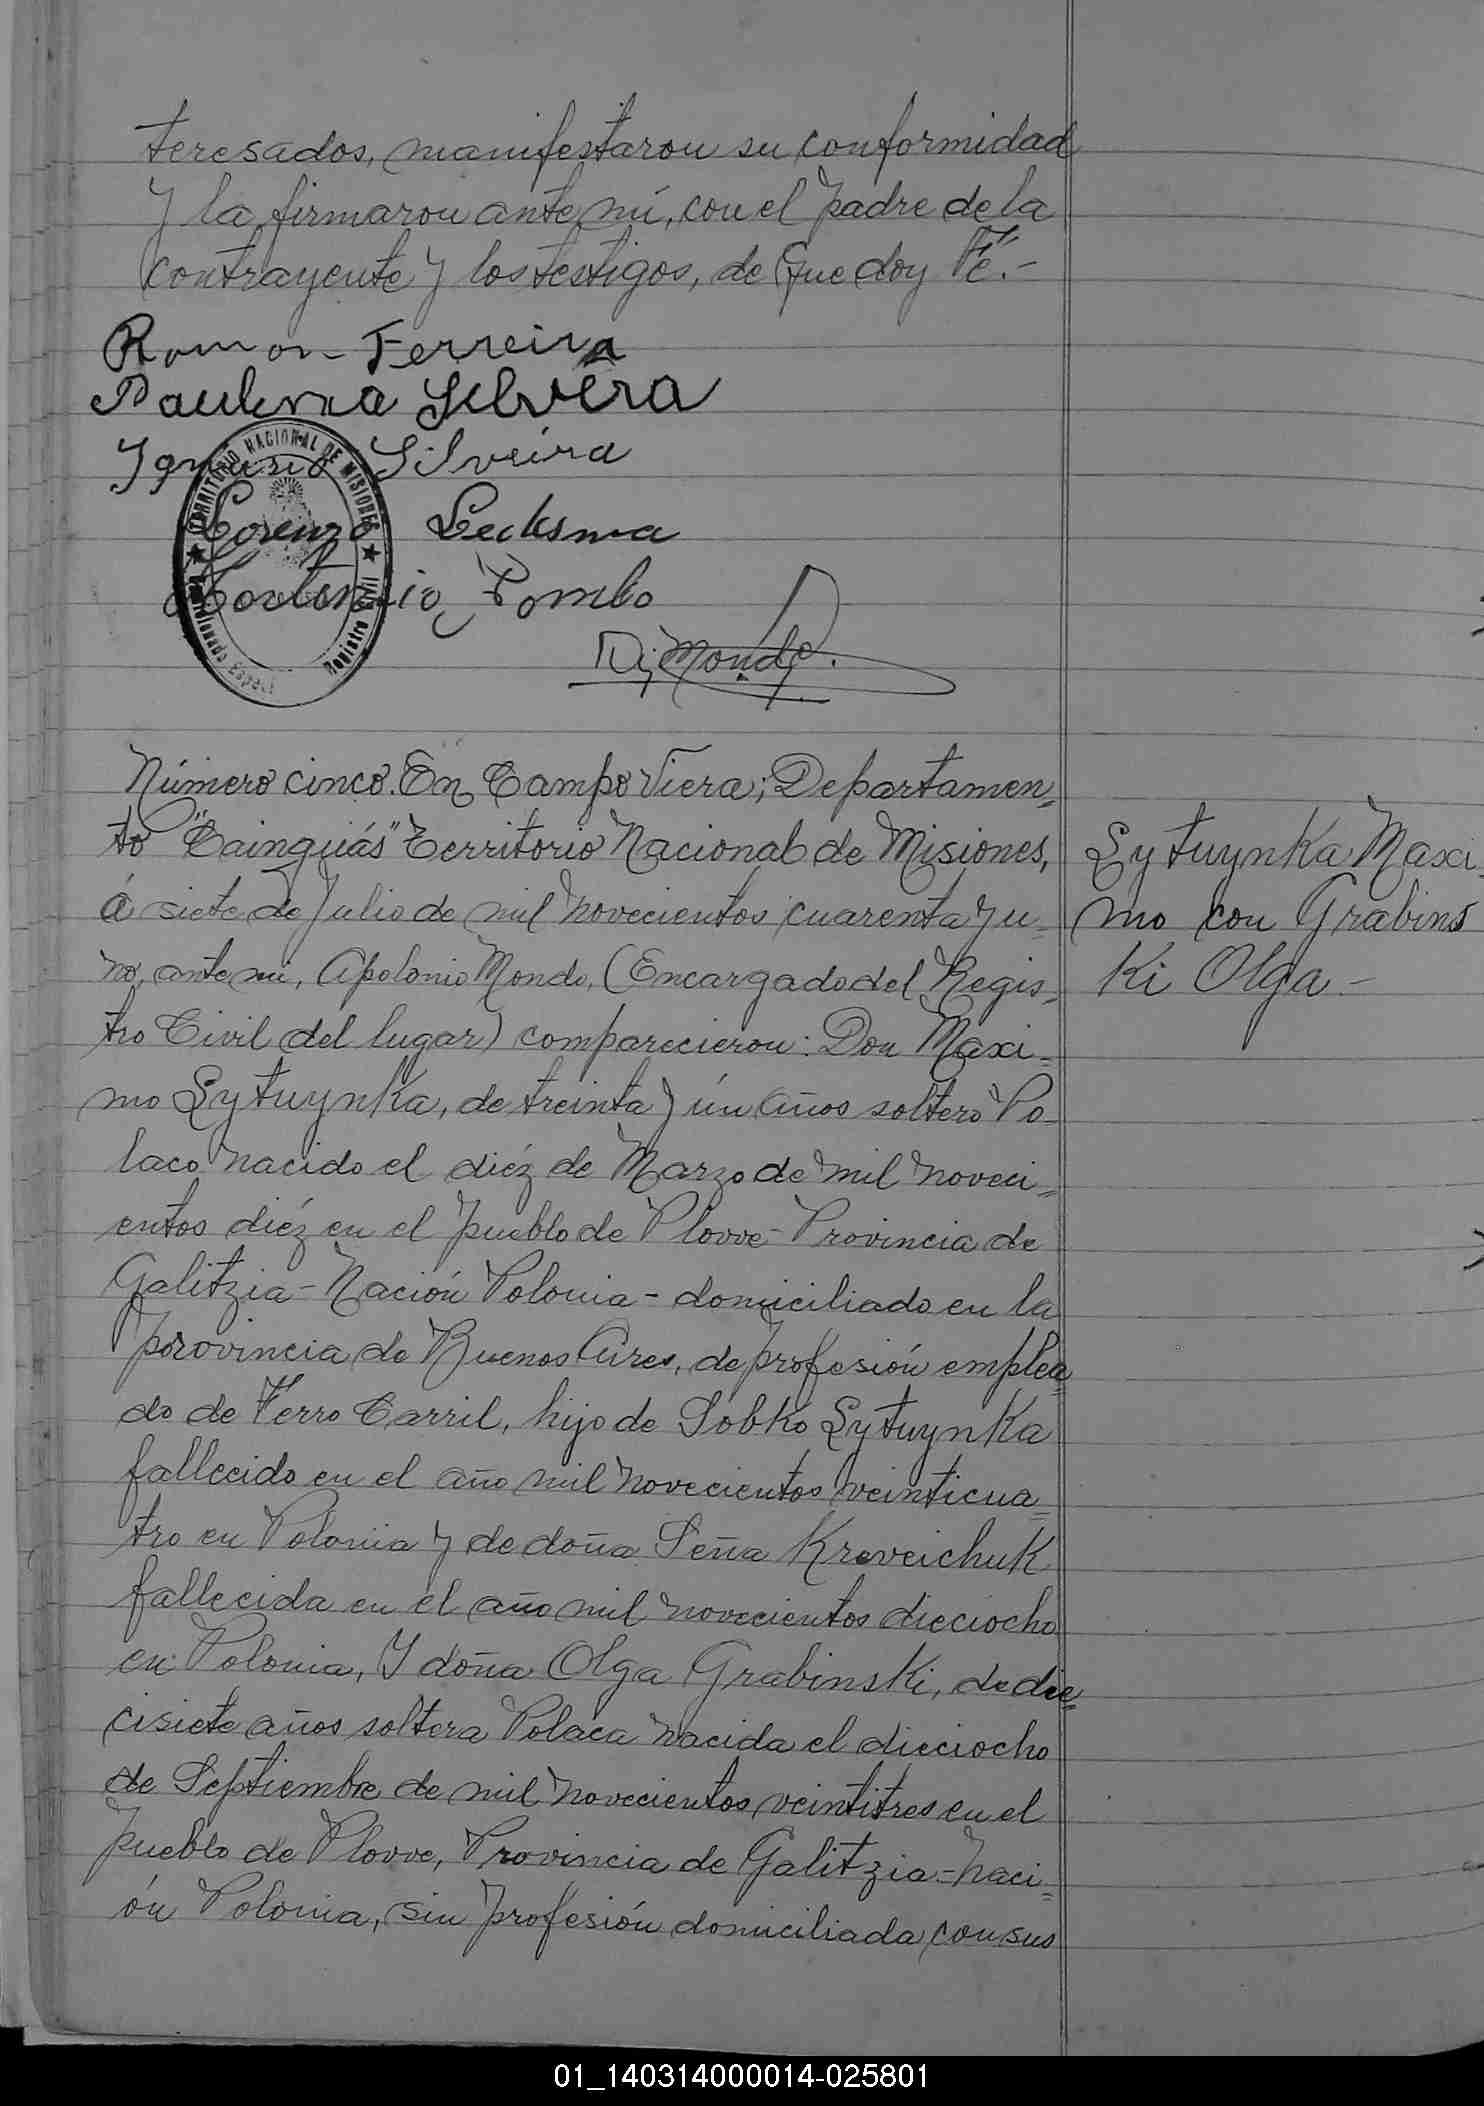 teresados, manifestaron su conformidad
y la firmaron ante mí, con el padre de la
contrayente y los testigos, de que doy Fé.-
Ramon Ferreira
Paulina Silveira
Ignacio Silveira
TERRITORIO NACIONAL DE MISIONES
Registro Civil
Lorenzo Ledesma
Hortencio Pombo
Mondo.
Número cinco. En Campo Viera; Departamen=
to "Cainguás" Territorio Nacional de Misiones,
á siete de Julio de mil novecientos cuarenta y u=
no, ante mi, Apolonio Mondo, (Encargado del Regis=
tro Civil del lugar) comparecieron: Don Maxi=
mo Lytuynka, de treinta y ún años soltero Po-
laco nacido el diéz de Marzo de mil noveci=
entos diéz en el pueblo de Plovve- Provincia de
Galitzia - Nación Polonia - domiciliado en la
porovincia de Buenos Aires, de profesión emplea=
do de Ferro Carril, hijo de Sobko Lytuynka
fallecido en el año mil novecientos veinticua=
tro en Polonia y de doña Seña Kreveichuk
fallecida en el año mil novecientos dieciocho
en Polonia, Y doña Olga Grabinski, de die=
cisiete años soltera Polaca nacida el dieciocho
de Septiembre de mil novecientos veintitres en el
pueblo de Plovve, Provincia de Galitzia - Naci=
ón Polonia, sin profesión domiciliada con sus
Lytuynka Maxi-
mo con Grabins
ki Olga.-
01_140314000014-025801